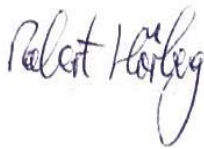 Robert Hörberg